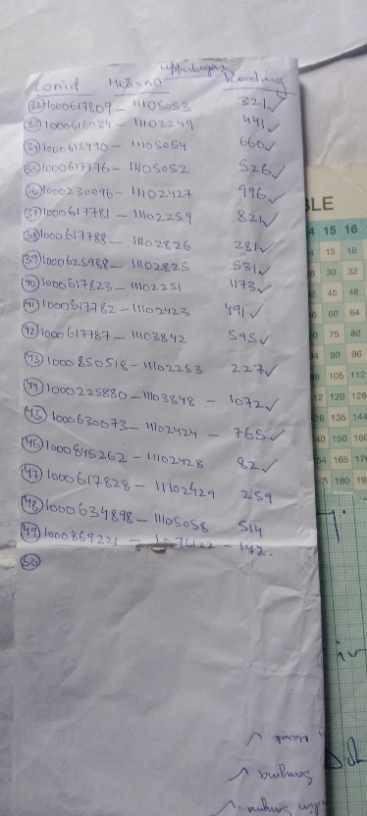 Con'id MeterNo Reading
(32) 1000617809 - 11105053 321 ✓
(33) 1000616034 - 11102249 441 ✓
(34) 1000615490 - 11105054 660 ✓
(35) 1000617776 - 11105052 526 ✓
(36) 1000230096 - 11102427 996 ✓
(37) 1000617781 - 11102259 821 ✓
(38) 1000617788 - 11102826 281 ✓
(39) 1000625988 - 11102825 531 ✓
(40) 1000617823 - 11102251 1173 ✓
(41) 1000617782 - 11102423 491 ✓
(42) 1000617787 - 11103842 595 ✓
(43) 1000850518 - 11102253 227 ✓
(44) 1000225880 - 11103848 - 1072 ✓
(45) 1000630073 - 11102424 - 765 ✓
(46) 1000845262 - 11102428 82 ✓
(47) 1000617828 - 11102429 259
(48) 1000634898 - 11105058 514
(49) 1000869221 - 142.
(50)
BLE
4 15 16
15 16
30 32
45 48
60 64
75 80
90 96
105 112
120 128
135 144
150 160
165
180